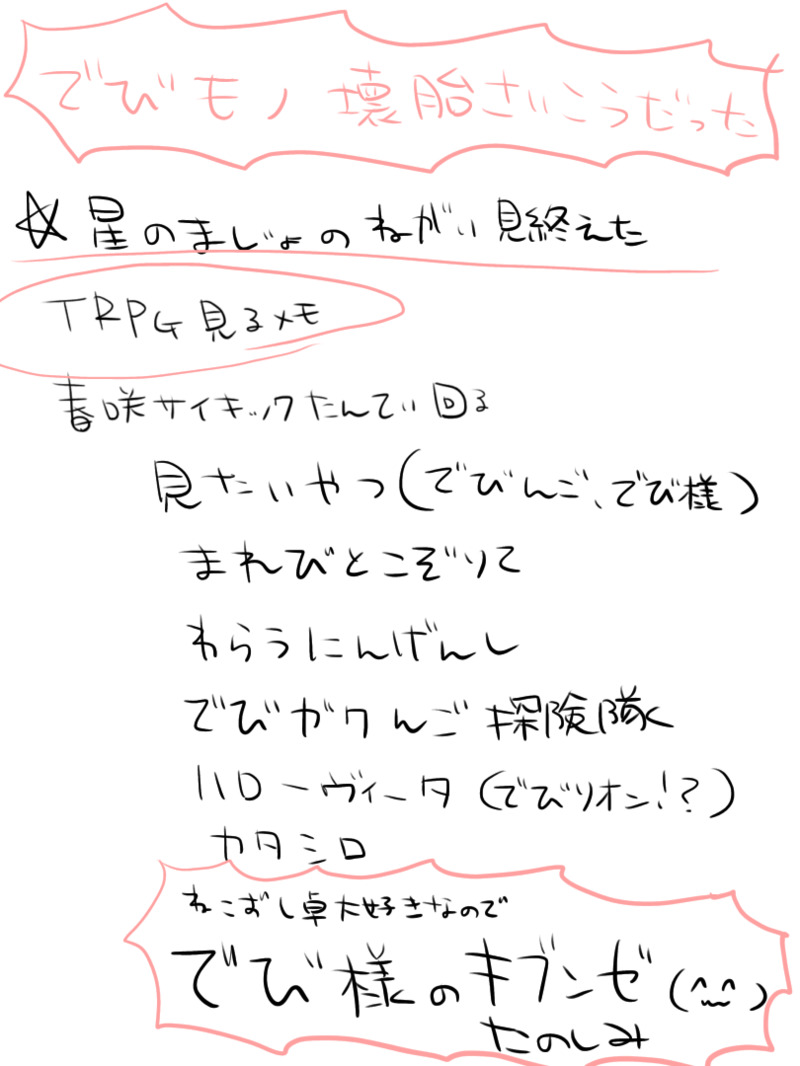 でびモノ壊胎さいこうだった
☆星のまじょのねがい見終えた
TRPG見るメモ
春咲サイキックたんてい回る
見たいやつ(でびんご、でび様)
まれびとこぞりて
わらうにんげんし
でびガクんご探険隊
ハローヴィータ(でびリオン!?)
カタシロ
ねこずし卓大好きなので
でび様のキブンゼ(^~^)
たのしみ